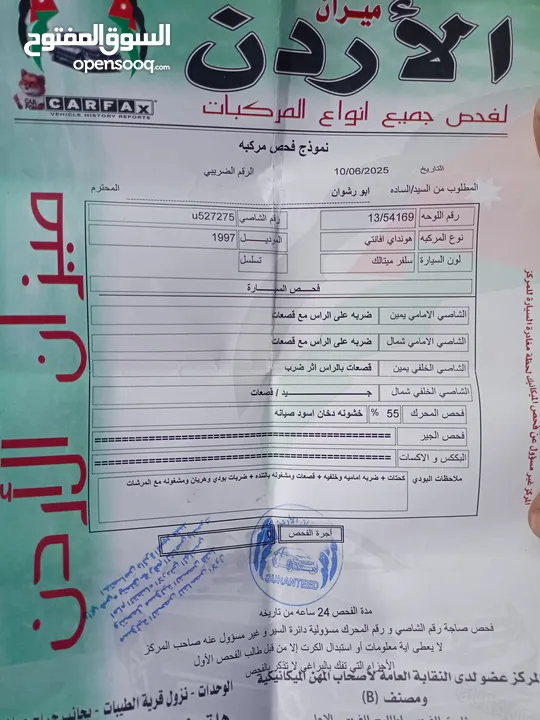 السوق المفتوح
opensooq.com
ميزان
الأردن
CAR FOX
CARFAX
VEHICLE HISTORY REPORTS
لفحص جميع انواع المركبات
نموذج فحص مركبه
التاريخ 10/06/2025 الرقم الضريبي
المطلوب من السيد/الساده ابو رشوان المحترم
رقم اللوحه 13/54169 رقم الشاصي u527275
نوع المركبه هونداي افانتي الموديــل 1997
لون السيارة سلفر ميتالك تسلسل
فحص السيارة
الشاصي الامامي يمين ضربه على الراس مع قصعات
الشاصي الامامي شمال ضربه على الراس مع قصعات
الشاصي الخلفي يمين قصعات بالراس اثر ضرب
الشاصي الخلفي شمال جـــيد / قصعات
فحص المحرك 55 % خشونه دخان اسود صيانه
فحص الجير ==========================================
البككس و الاكسات ==========================================
ملاحظات البودي كحتات + ضربه اماميه وخلفيه + قصعات ومشغوله بالتنده + ضربات بودي وهريان ومشغوله مع المرشات
اجرة الفحص
GUARANTEED
مدة الفحص 24 ساعه من تاريخه
فحص صاجة رقم الشاصي و رقم المحرك مسؤولية دائرة السير و غير مسؤول عنه صاحب المركز
لا يعطى اية معلومات أو استبدال الكرت إلا من قبل طالب الفحص الأول
الأجزاء التي تفك بالبراغي لا تذكر بالفحص
المركز عضو لدى النقابة العامة لأصحاب المهن الميكانيكية
ومصنف (B)
الوحدات - نزول قرية الطيبات - بجانب
ميزان الأردن
المركز غير مسؤول عن فحص الميكانيك لحظة مغادرة السيارة للمركز